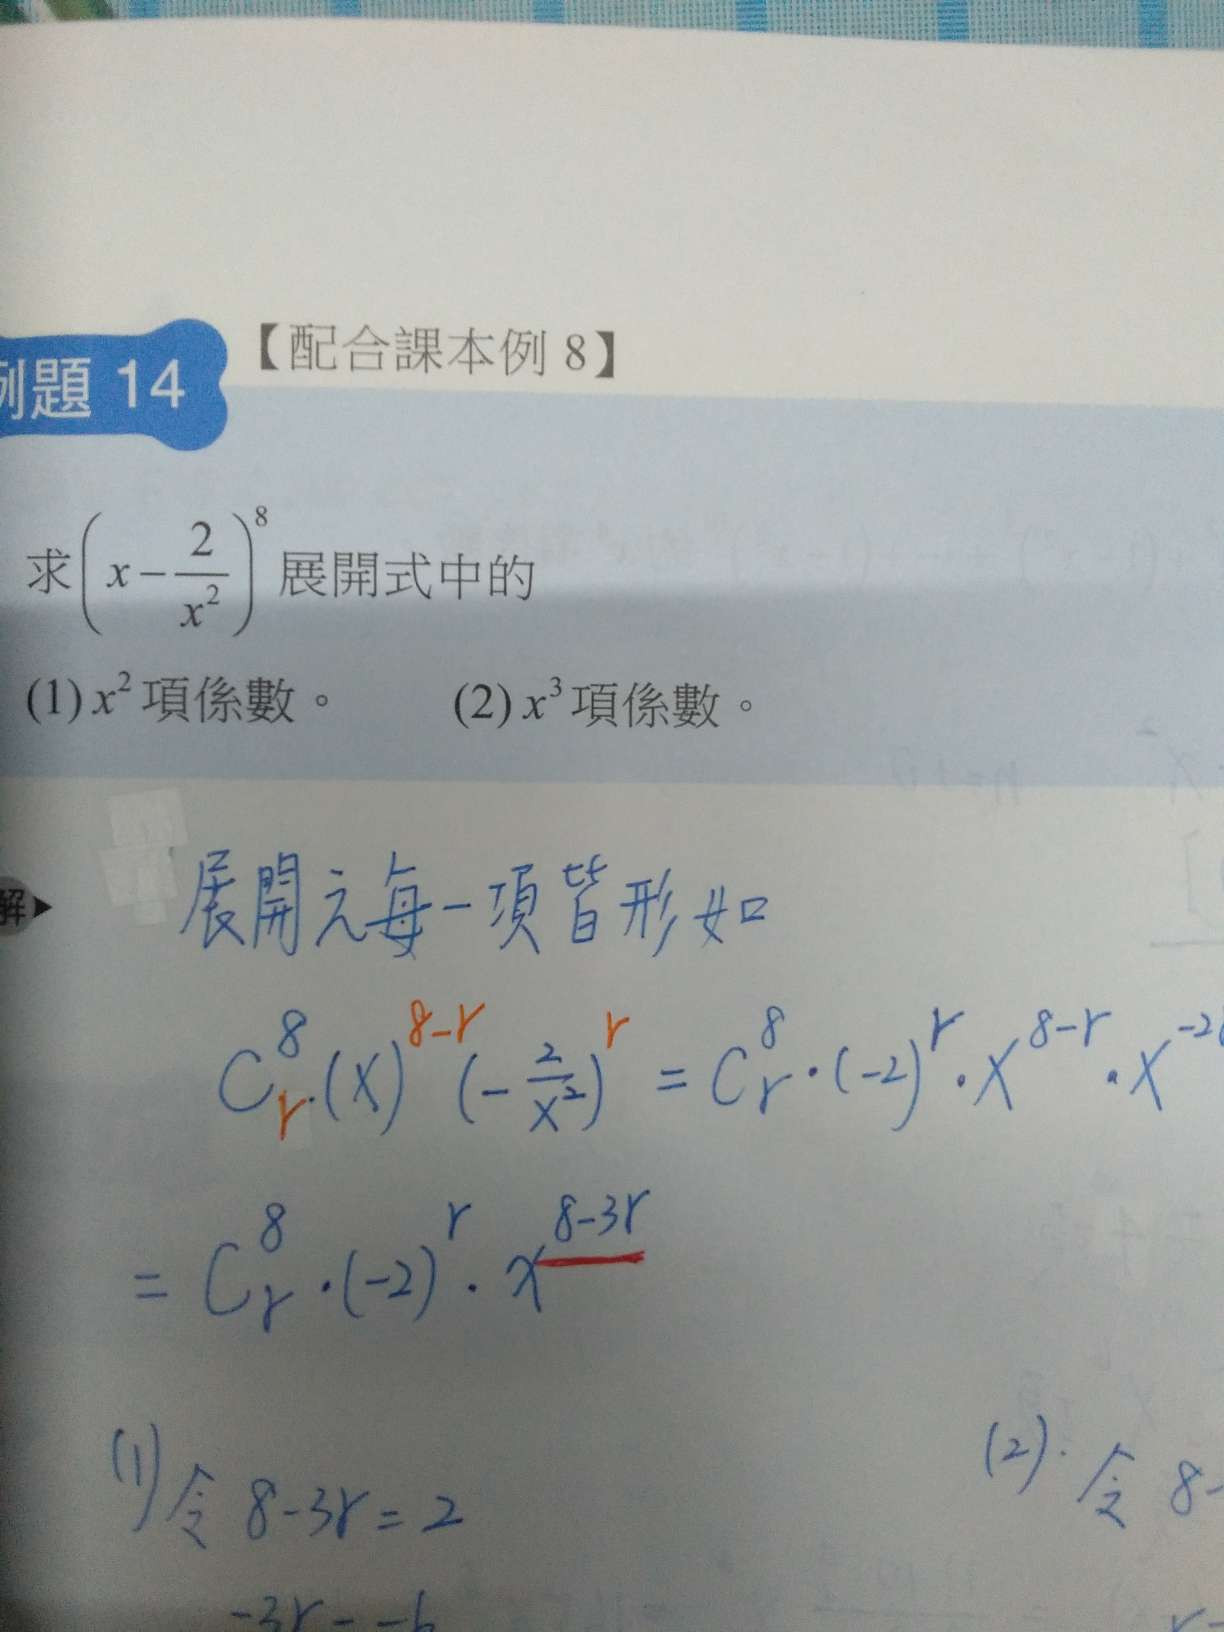 例題 14 【配合課本例 8】
求(x-2/x²)⁸展開式中的
(1) x²項係數。 (2) x³項係數。
解 展開元每一項皆形如
C⁸ᵣ·(x)⁸⁻ʳ(-2/x²)ʳ = C⁸ᵣ·(-2)ʳ·x⁸⁻ʳ·x⁻²
= C⁸ᵣ·(-2)ʳ·x⁸⁻³ʳ
(1) 令 8-3r=2 (2). 令 8-
-3r=-6